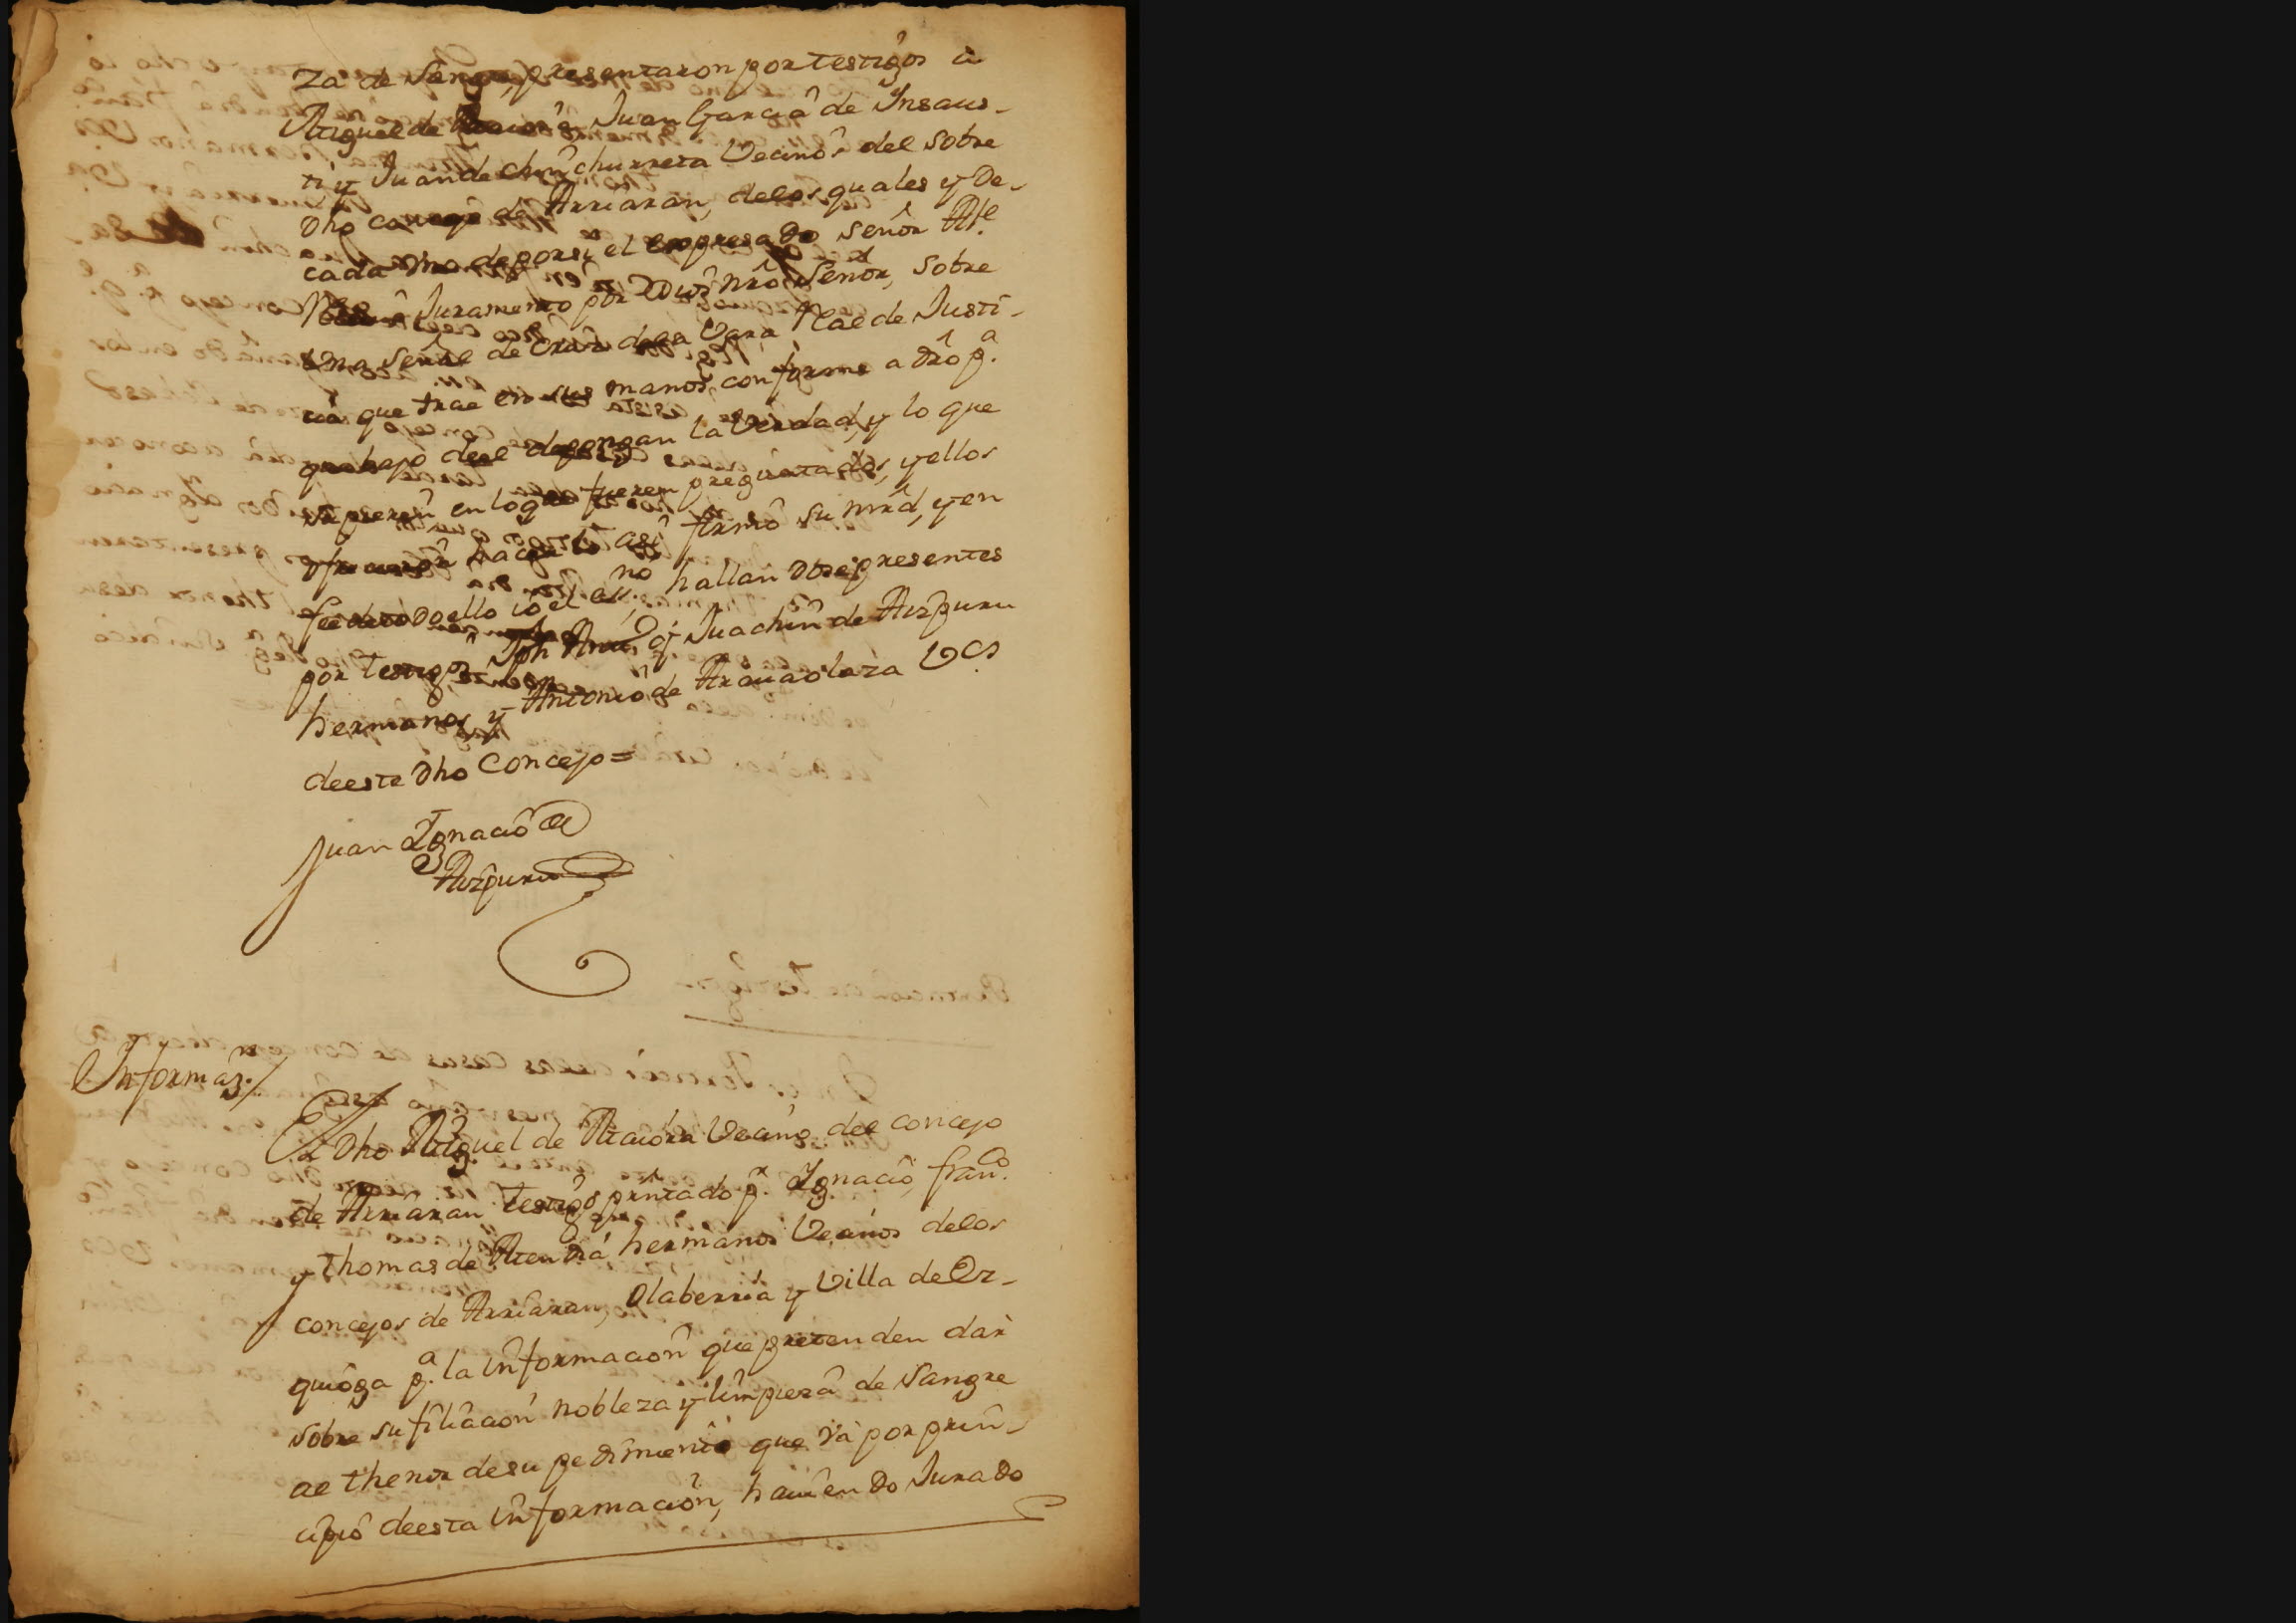 za de Sangre, presentaron por testigos â
Miguel de Maiora, Juan Garcia de Ynsaus-
ti y Juan de chinchurreta Vecinos del sobre
dho concejo de Arriaran, delos quales y de
cada uno deporsi el expresado señor Alc̃e
Juramento por Dios nr̃o Señor, sobre
una señal de Cruz dela Vara Real de Justi-
cia que trae en sus manos, conforme a dr̃o pª.
que bajo deel depongan la Verdad, y lo que
supieren en loque fueren preguntados, y ellos
ofrecieron hacerlo asi firmô su mrd̃, y en
fee detodoello io el ess.no hallandose presentes
por testigos, Jph Ant.º y Juachin de Aizpuru
hermanos, y Antonio de Arauaolaza Vc.s
deeste Dho Concejo =
Juan Ygnacio de
Aizpuru
Informaz.n/.
El Dho Miguel de Maiora Vecino del concejo
de Arriaran testigo pñtado pr. Ygnacio, fran.co
y thomas de Mendia hermanos Vecinos delos
concejos de Arriaran, Olaberria y Villa de Or-
quioga pª. la informacion que pretenden dar
sobre su filiacion nobleza y limpieza de Sangre
ael thenor desu pedimiento que và por prin-
cipio deesta informacion, hauiendo Jurado